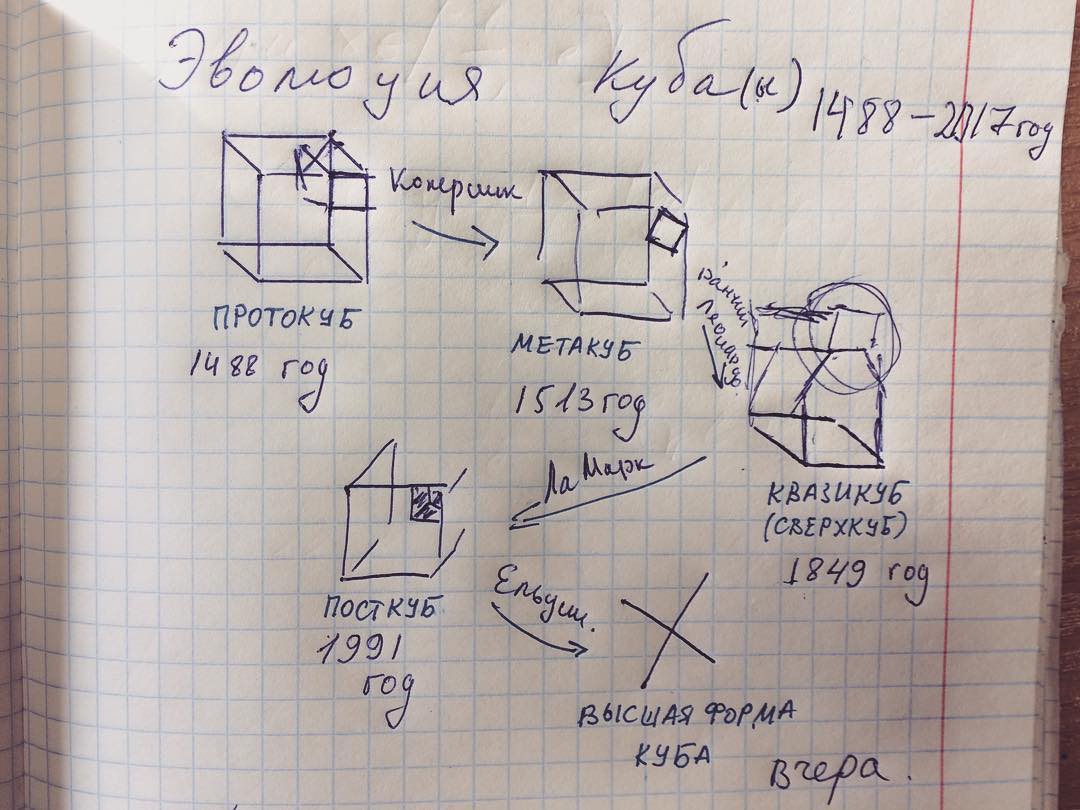 Эволюция Куба(ы) 1488–2017 год
Коперник
ПРОТОКУБ
1488 год
МЕТАКУБ
1513 год
ранний
КВАЗИКУБ
(СВЕРХКУБ)
1849 год
Ла Марк
ПОСТКУБ
1991
год
Ельцин.
ВЫСШАЯ ФОРМА
КУБА
Вчера.